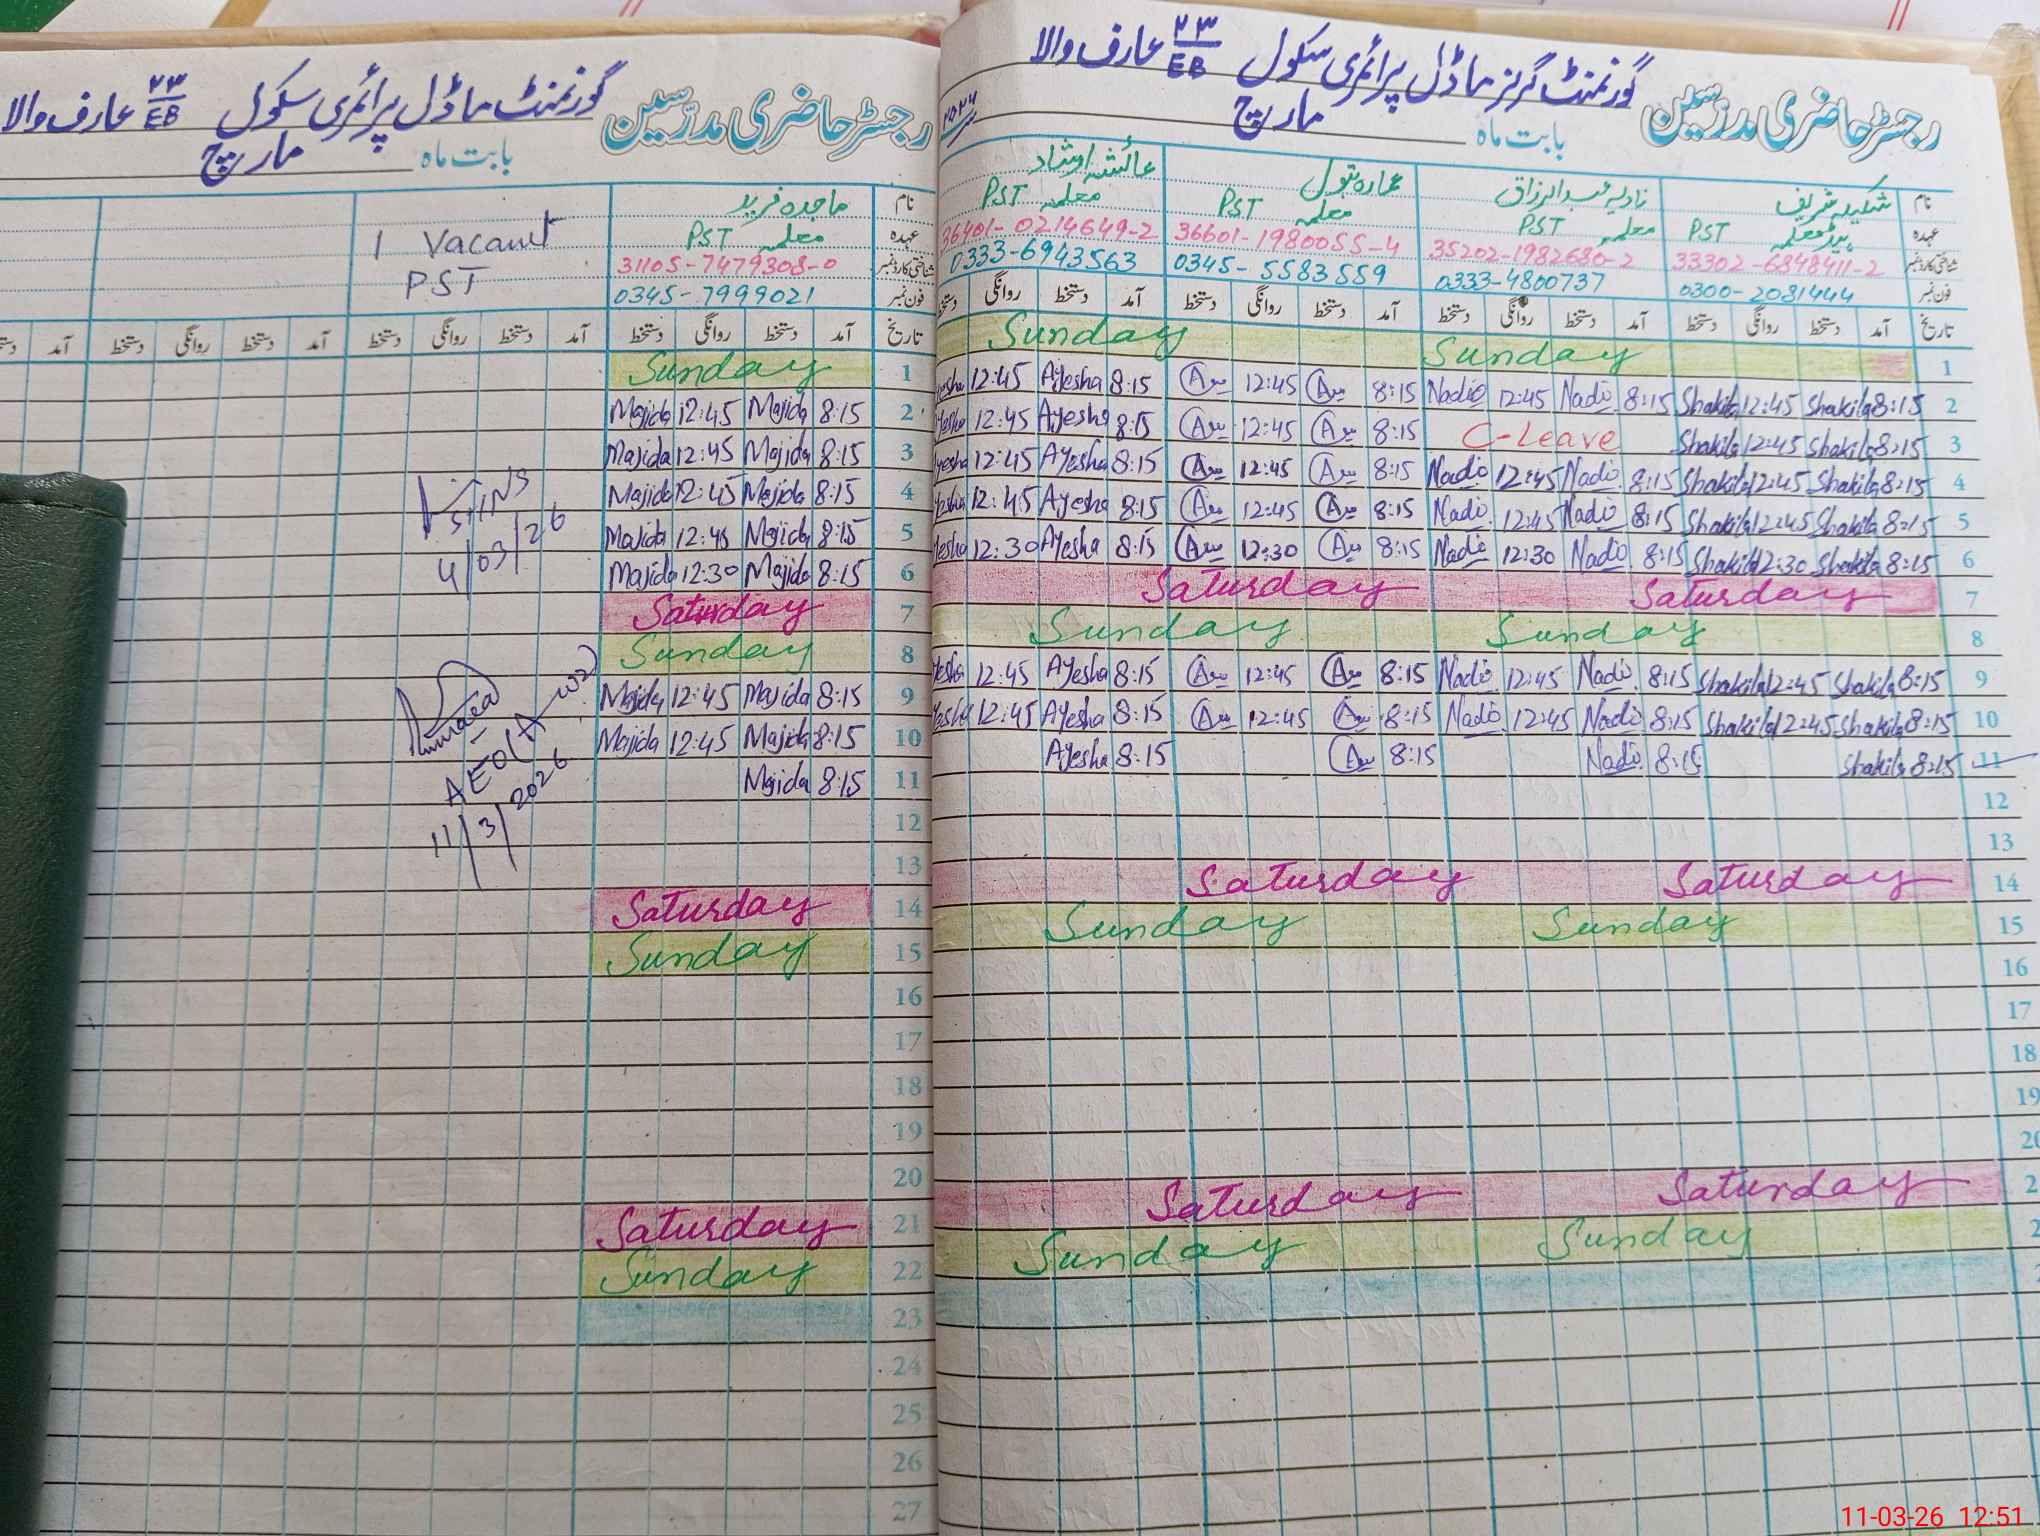 رجسٹر حاضری مدرّسین گورنمنٹ گرلز ماڈل پرائمری سکول ۲۳/EB عارف والا
بابت ماہ مارچ
نام شکیلہ شریف نادیہ عبدالرزاق عمارہ بتول عائشہ ارشاد
عہدہ ہیڈ معلمہ PST معلمہ PST معلمہ PST معلمہ PST
شناختی کارڈ نمبر 33302-6848411-2 35202-1982680-2 36601-1980055-4 36401-0214649-2
فون نمبر 0300-2081444 0333-4800737 0345-5583559 0333-6943563
تاریخ آمد دستخط روانگی دستخط آمد دستخط روانگی دستخط آمد دستخط روانگی دستخط آمد دستخط روانگی دستخط
1 Sunday Sunday
2 8:15 Shakila 12:45 Shakila 8:15 Nadia 12:45 Nadia 8:15 12:45 8:15 Ayesha 12:45 Ayesha
3 8:15 Shakila 12:45 Shakila C-Leave 8:15 12:45 8:15 Ayesha 12:45 Ayesha
4 8:15 Shakila 12:45 Shakila 8:15 Nadia 12:45 Nadia 8:15 12:45 8:15 Ayesha 12:45 Ayesha
5 8:15 Shakila 12:45 Shakila 8:15 Nadia 12:45 Nadia 8:15 12:45 8:15 Ayesha 12:45 Ayesha
6 8:15 Shakila 12:30 Shakila 8:15 Nadia 12:30 Nadia 8:15 12:30 8:15 Ayesha 12:30 Ayesha
7 Saturday Saturday
8 Sunday Sunday
9 8:15 Shakila 12:45 Shakila 8:15 Nadia 12:45 Nadia 8:15 12:45 8:15 Ayesha 12:45 Ayesha
10 8:15 Shakila 12:45 Shakila 8:15 Nadia 12:45 Nadia 8:15 12:45 8:15 Ayesha 12:45 Ayesha
11 8:15 Shakila 8:15 Nadia 8:15 8:15 Ayesha
12
13
14 Saturday Saturday
15 Sunday Sunday
16
17
18
19
Saturday Saturday
Sunday Sunday
رجسٹر حاضری مدرّسین گورنمنٹ ماڈل پرائمری سکول ۲۳/EB عارف والا
بابت ماہ مارچ
نام ماجدہ فرید
عہدہ معلمہ PST 1 Vacant
شناختی کارڈ نمبر 31105-7479308-0 PST
فون نمبر 0345-7999021
تاریخ آمد دستخط روانگی دستخط آمد دستخط روانگی دستخط آمد دستخط روانگی دستخط آمد
1 Sunday
2 8:15 Majida 12:45 Majida
3 8:15 Majida 12:45 Majida
4 8:15 Majida 12:45 Majida
5 8:15 Majida 12:45 Majida
4/03/26
6 8:15 Majida 12:30 Majida
7 Saturday
8 Sunday
9 8:15 Majida 12:45 Majida
10 8:15 Majida 12:45 Majida
AEO
11 8:15 Majida
11/3/2026
12
13
14 Saturday
15 Sunday
16
17
18
19
20
21 Saturday
22 Sunday
23
24
25
26
27
11-03-26 12:51